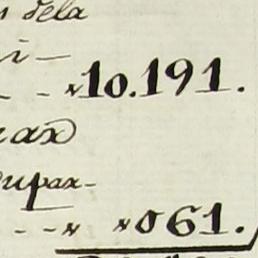 dela
i—
10.191.
rax
upax-
061.